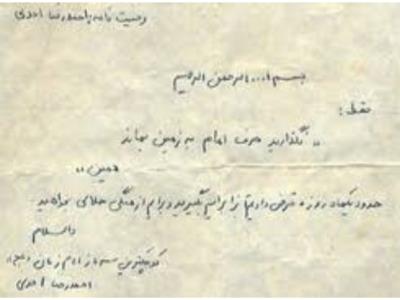 وصیت نامه احمدرضا احدی
بسم ا... الرحمن الرحیم
فقط:
,, نگذارید حرف امام به زمین بماند
همین ,,
حدود یکماه روزه قرض دارم تا برایم بگیرید و برایم از همگی حلالی بخواهید
والسلام
کوچکترین سرباز امام زمان (عج)
احمدرضا احدی